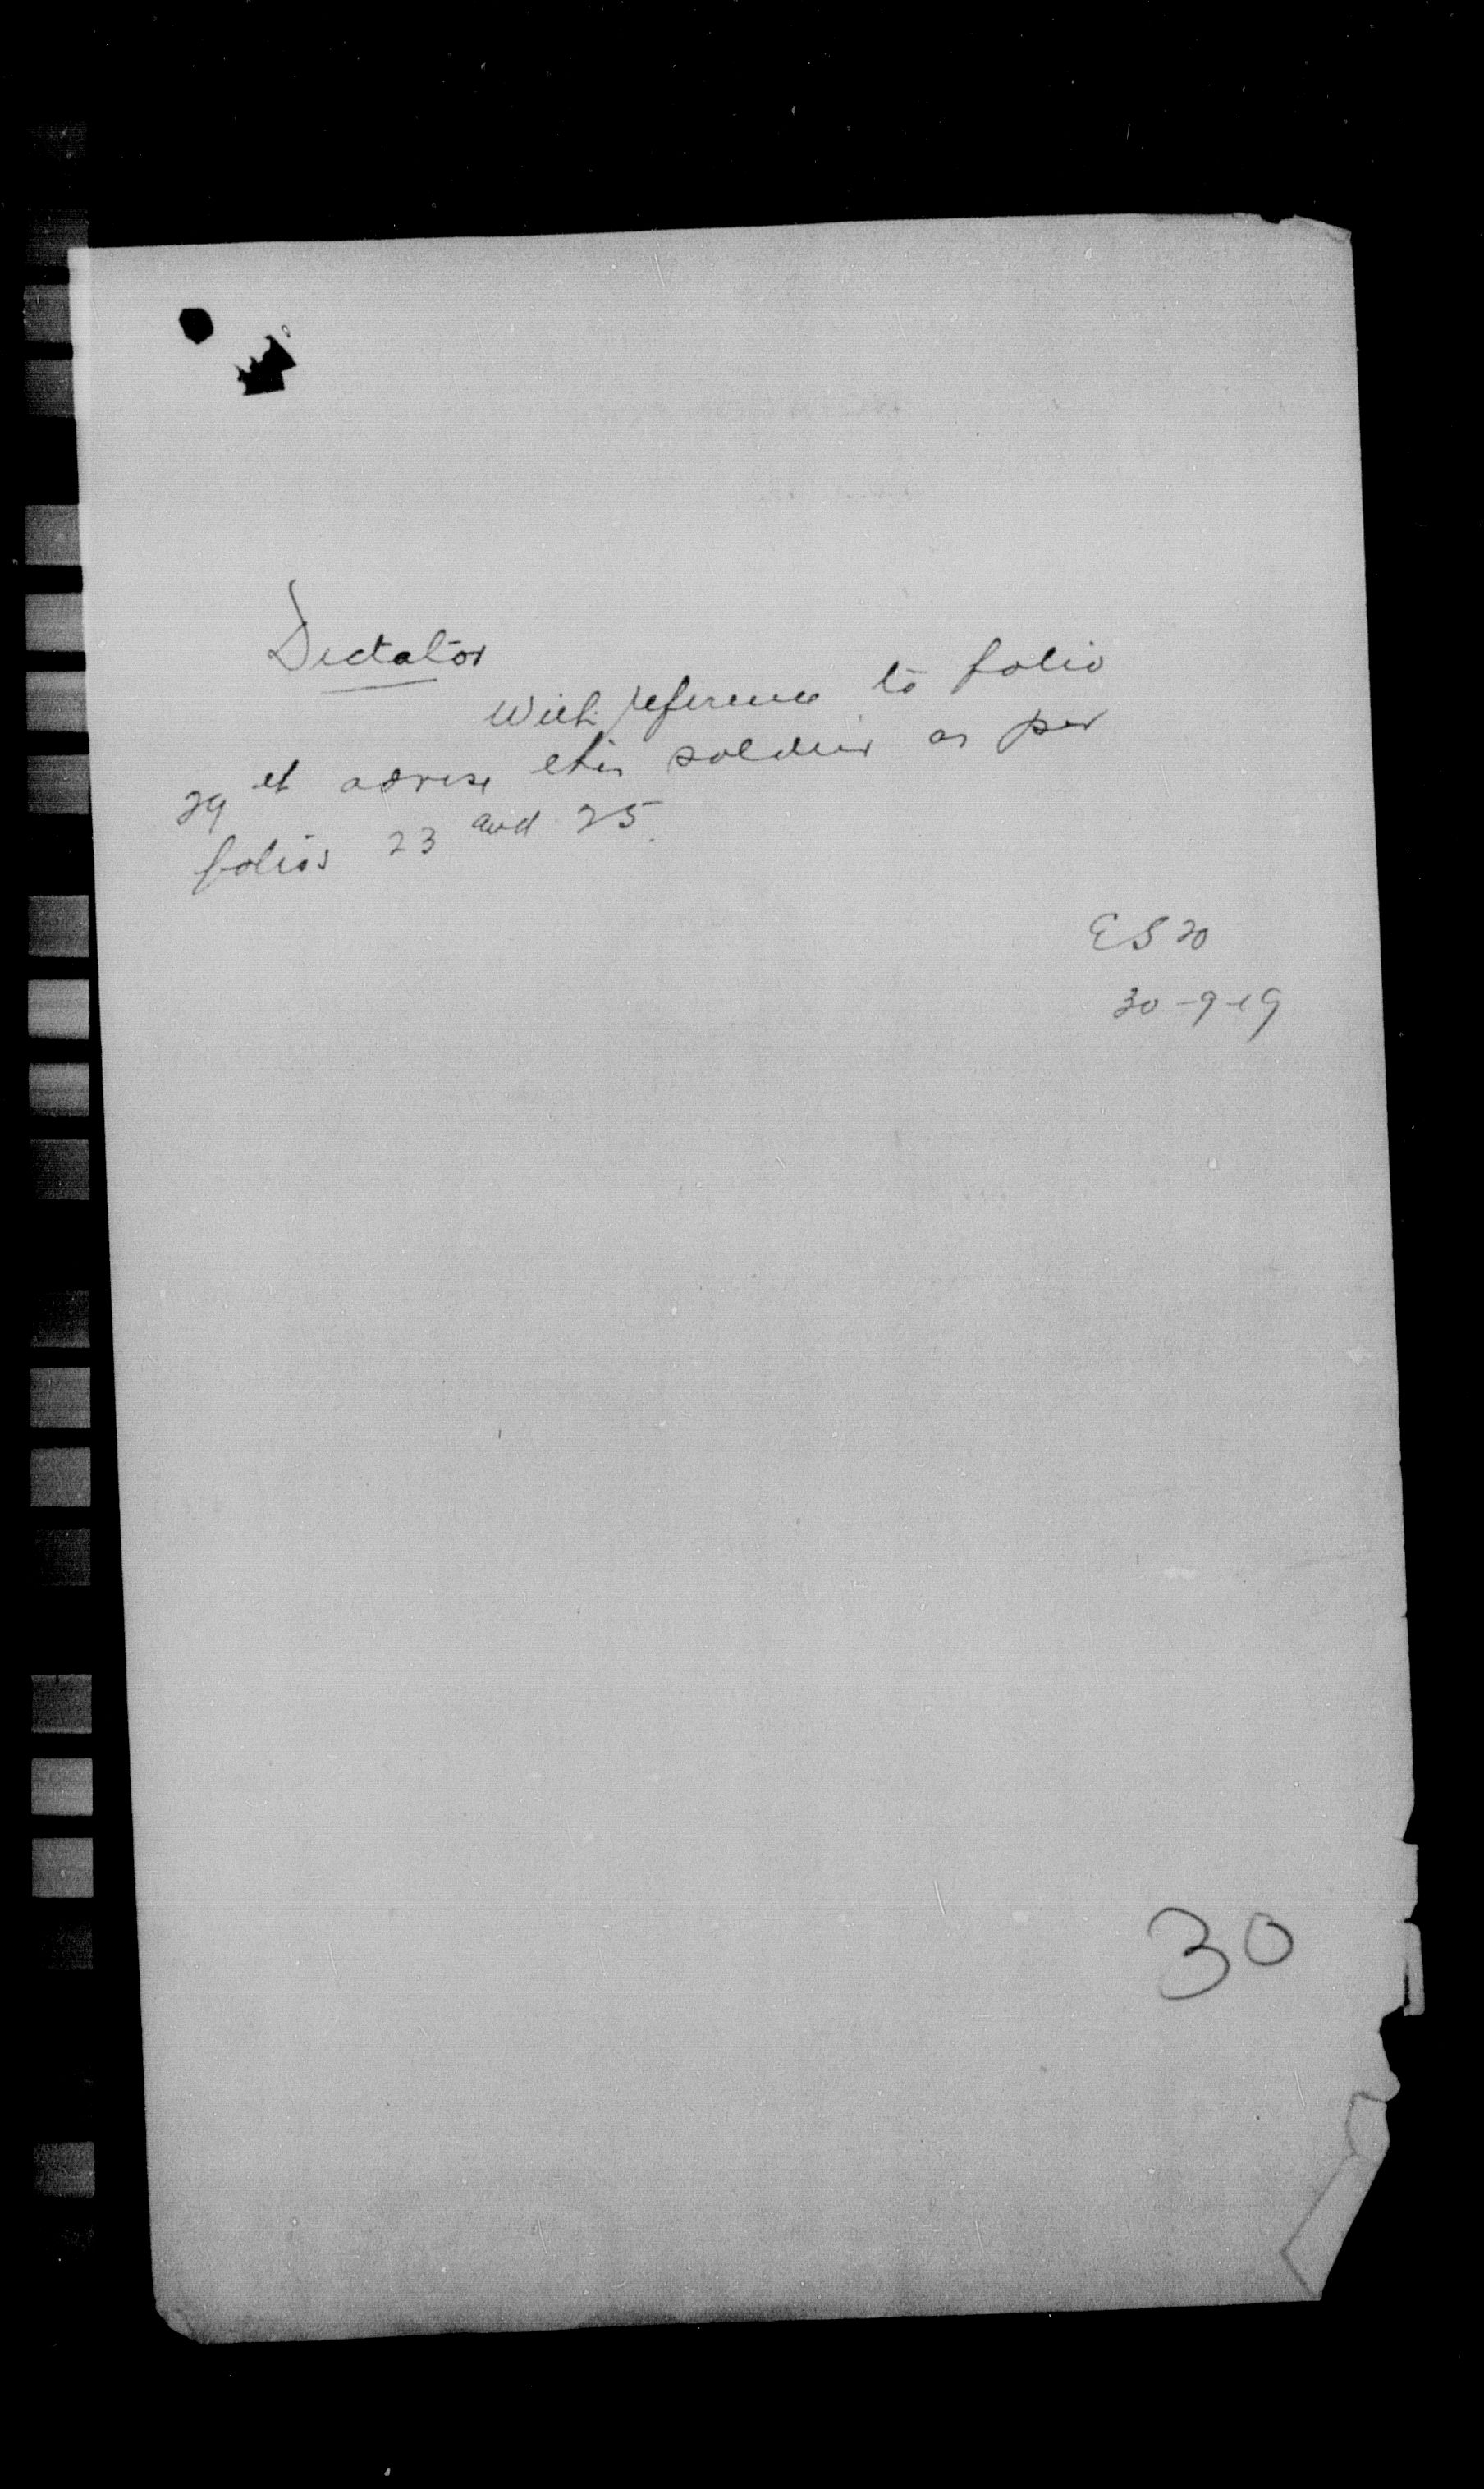 Dictator
With reference to folio
29 et advise this soldier as per
folios 23 and 25.
ES 20
30-9-19
30